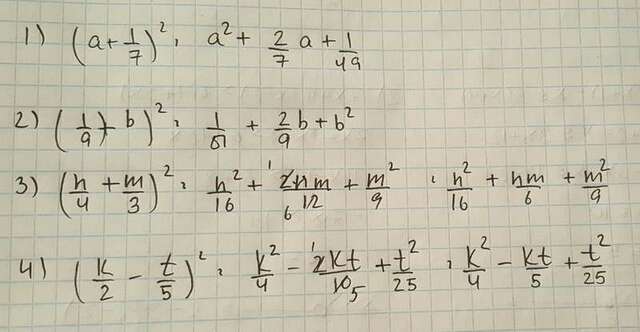 1) (a + 1/7)² : a² + 2/7 a + 1/49
2) (1/9 + b)² : 1/81 + 2/9 b + b²
3) (n/4 + m/3)² : n²/16 + 2nm/12 + m²/9 : n²/16 + nm/6 + m²/9
4) (k/2 - t/5)² : k²/4 - 2kt/10 + t²/25 : k²/4 - kt/5 + t²/25